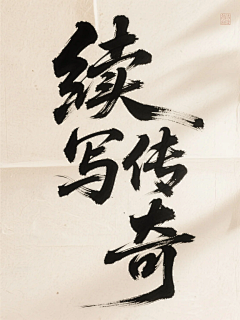 续
写传
奇